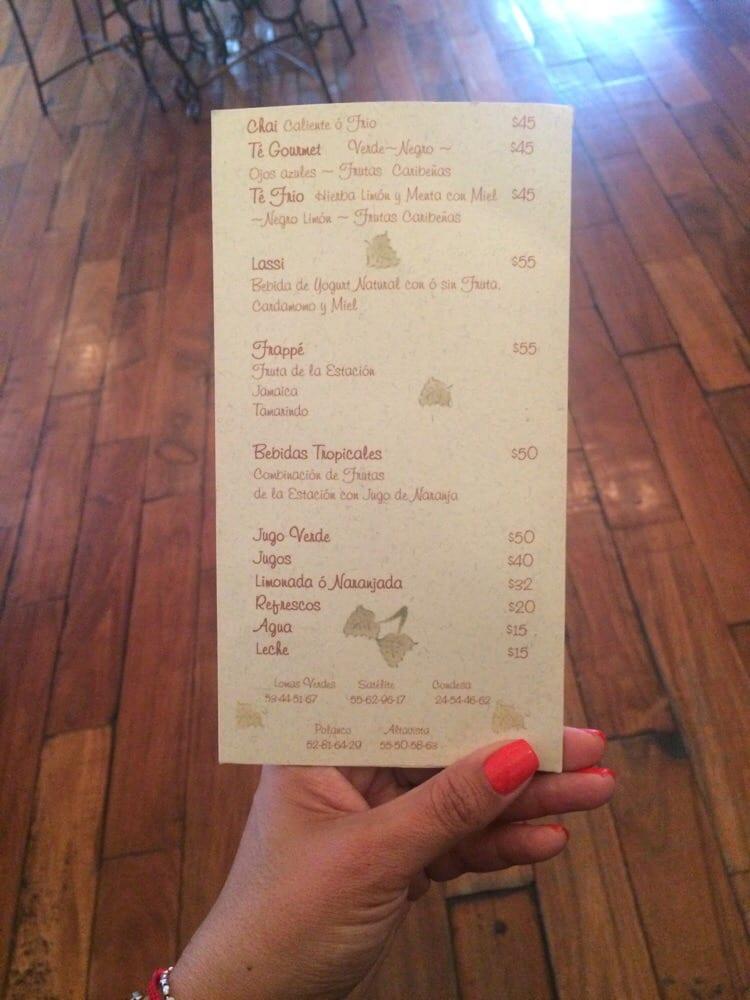 Chai Caliente ó Frio $45
Té Gourmet Verde~Negro ~ $45
Ojos azules ~ Frutas Caribeñas
Té Frio Hierba Limón y Menta con Miel $45
~Negro Limón ~ Frutas Caribeñas
Lassi $55
Bebida de Yogurt Natural con ó sin Fruta,
Cardamomo y Miel
Frappé $55
Fruta de la Estación
Jamaica
Tamarindo
Bebidas Tropicales $50
Combinación de Frutas
de la Estación con Jugo de Naranja
Jugo Verde $50
Jugos $40
Limonada ó Naranjada $32
Refrescos $20
Agua $15
Leche $15
Lomas Verdes Satélite Condesa
53-44-51-67 55-62-96-17 24-54-46-62
Polanco Altavista
52-81-64-29 55-50-58-63